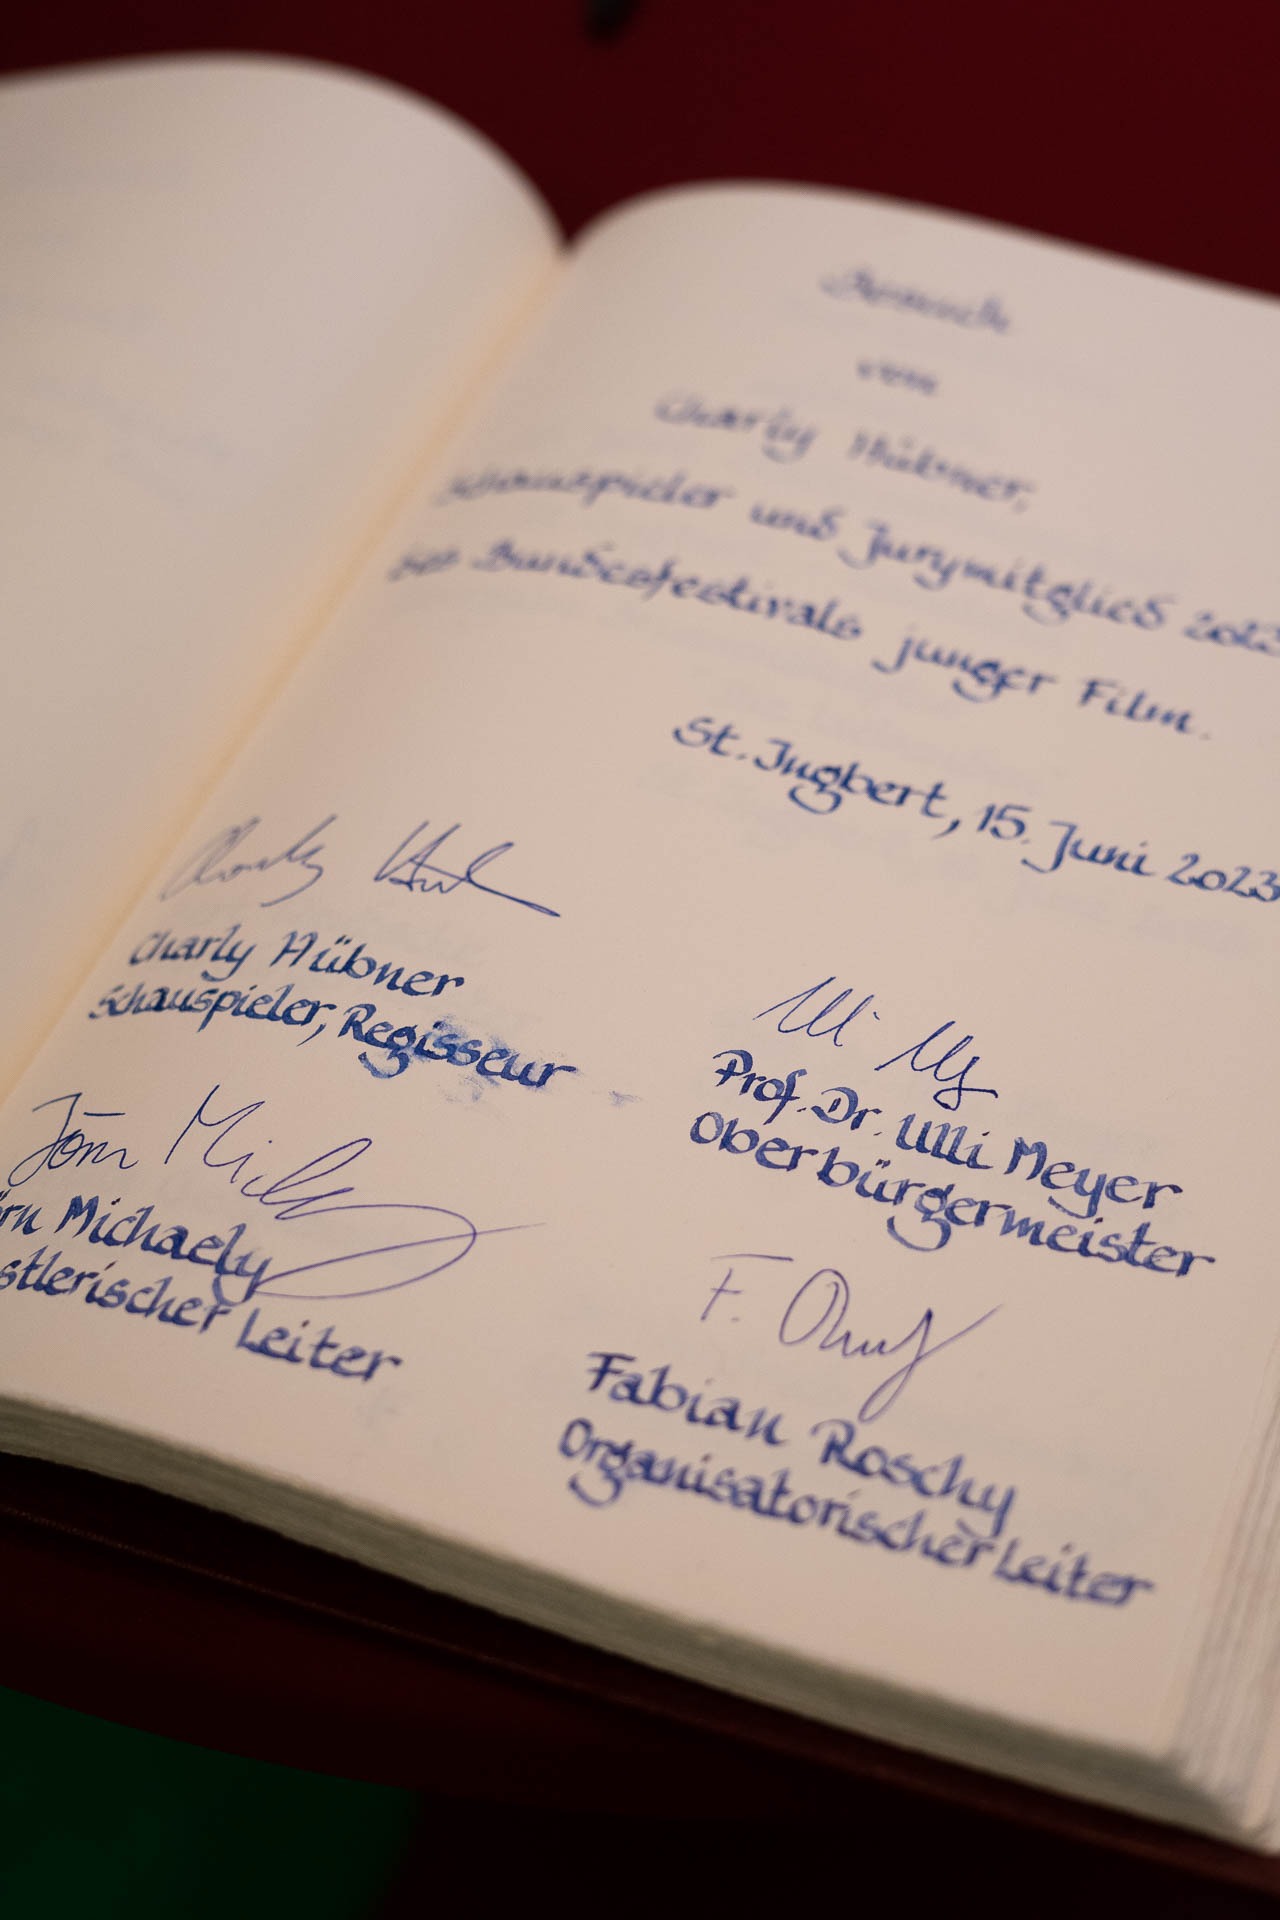 Besuch
von
Charly Hübner,
Schauspieler und Jurymitglied 2023
des Bundesfestivals junger Film.
St. Ingbert, 15. Juni 2023
Charly Hübner
Charly Hübner
Schauspieler, Regisseur
Ulli Meyer
Prof. Dr. Ulli Meyer
Oberbürgermeister
Jörn Michaely
örn Michaely
stlerischer Leiter
F.
Fabian Roschy
Organisatorischer Leiter